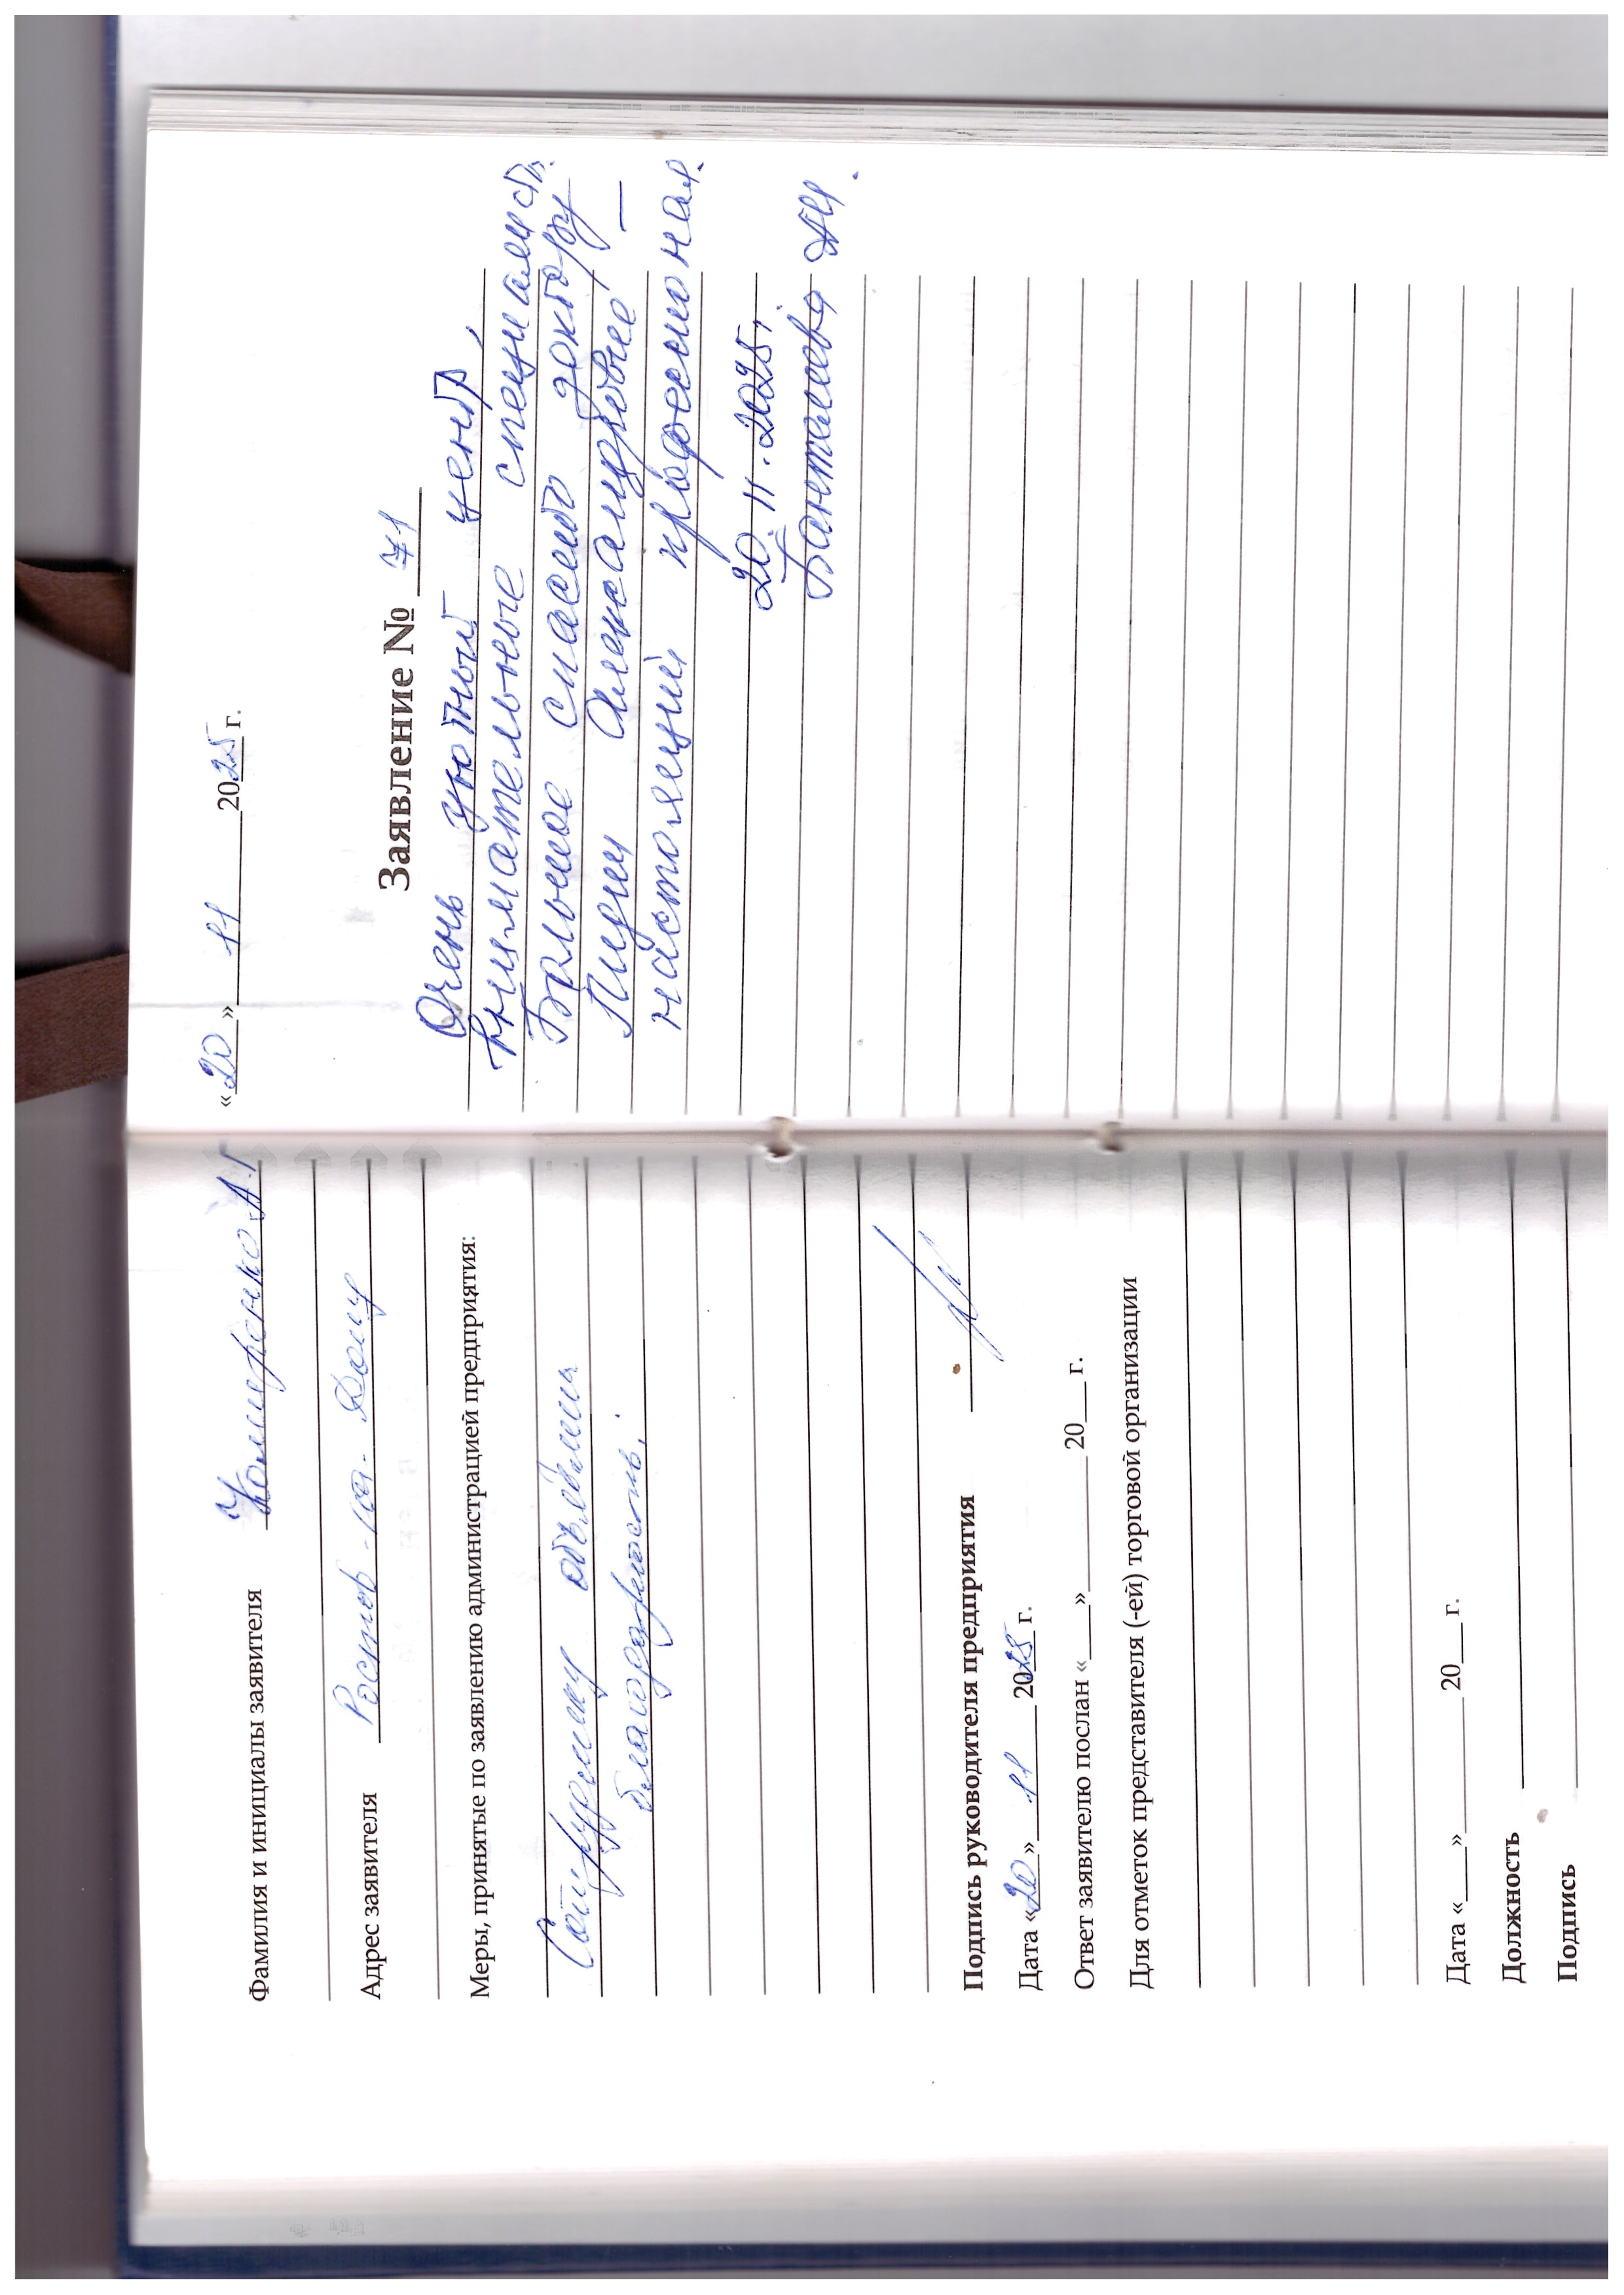 Фамилия и инициалы заявителя
Адрес заявителя Ростов-на-Дону
Меры, принятые по заявлению администрацией предприятия:
Сотруднику объявлена
благодарность.
Подпись руководителя предприятия
Дата «20» 11 2025 г.
Ответ заявителю послан «___»________20___ г.
Для отметок представителя (-ей) торговой организации
Дата «___»________ 20___ г.
Должность
Подпись
«20» 11 2025 г.
Заявление № 71
Очень уютный центр,
внимательные специалисты.
Большое спасибо доктору
Лидии Александровне –
настоящий профессионал.
20.11.2025г.